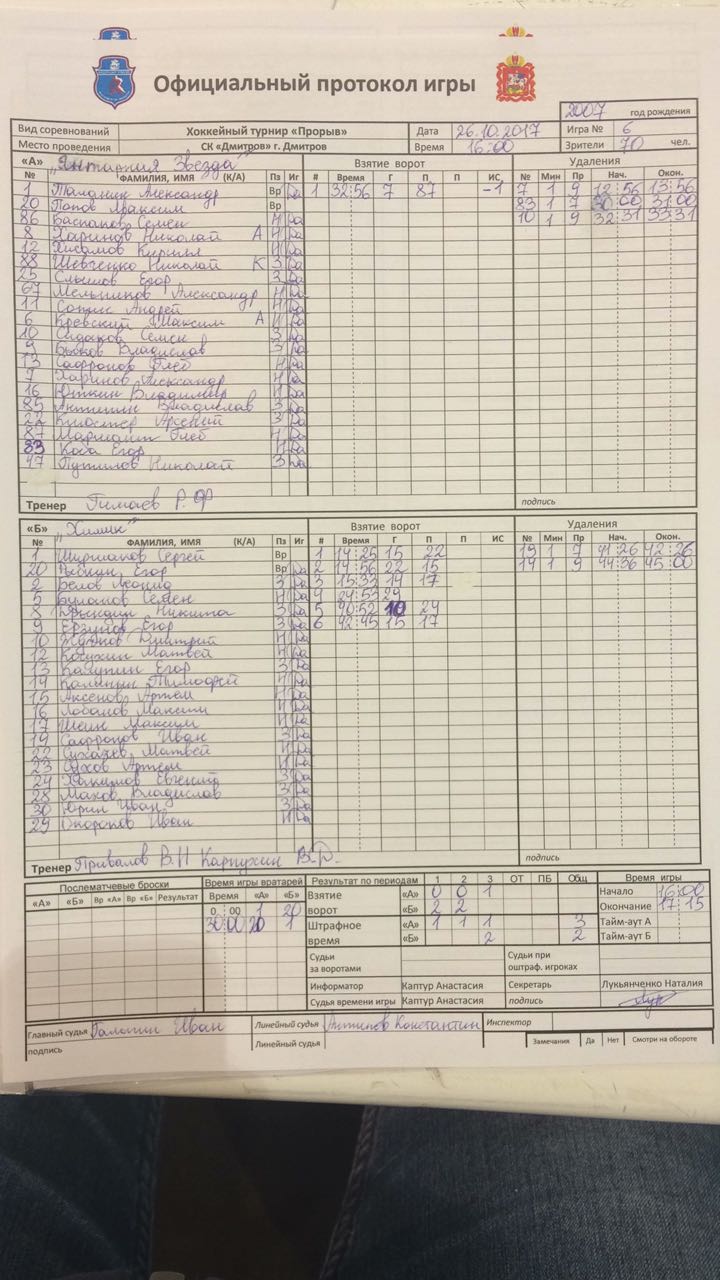 Официальный протокол игры
2007 год рождения
Вид соревнований Хоккейный турнир «Прорыв» Дата 26.10.2017 Игра № 6
Место проведения СК «Дмитров» г. Дмитров Время 16:00 Зрители 70 чел.
«А» "Янтарная Звезда" Взятие ворот Удаления
№ ФАМИЛИЯ, ИМЯ (К/А) Пз Иг # Время Г П П ИС № Мин Пр Нач. Окон.
1 Александр Вр Да 1 32:56 7 87 -1 7 1 9 12:56 13:56
20 Попов Максим Вр 83 1 7 30:00 31:00
86 Семен Н Да 10 1 9 32:31 33:31
8 Харинов Николай А Н Да
12 Хисамов Кирилл Н Да
88 Шевченко Николай К З Да
25 Егор З Да
67 Мельников Александр Н Да
11 Андрей Н Да
6 Кревский Максим А Н Да
10 Сидаков Семен З Да
9 Быков Владислав З Да
13 Сафронов Глеб Н Да
7 Харинов Александр Н Да
16 Юткин Владимир Н Да
85 Антипин Владислав З Да
22 Арсений З Да
87 Глеб Н Да
83 Коба Егор Н Да
97 Николай З Да
Тренер Гимаев Р. Ф подпись
«Б» "Химик" Взятие ворот Удаления
№ ФАМИЛИЯ, ИМЯ (К/А) Пз Иг # Время Г П П ИС № Мин Пр Нач. Окон.
1 Сергей Вр 1 14:25 15 22 19 1 7 41:26 42:26
20 Рыбкин Егор Вр Да 2 14:56 22 15 19 1 9 44:36 45:00
2 Белов Леонид З Да 3 15:33 19 17
5 Буланов Семен Н Да 4 24:53 29
8 Никита З Да 5 40:52 10 24
9 Ерзунов Егор З Да 6 42:45 15 17
10 Жданов Дмитрий Н Да
12 Кокухин Матвей Н Да
13 Калугин Егор З Да
14 Калинин Тимофей Н Да
15 Аксенов Артем Н Да
16 Лобанов Максим Н Да
17 Шеин Максим Н Да
19 Сафронов Иван З Да
22 Сухачев Матвей Н Да
23 Сухов Артем Н Да
24 Хакимов Евгений З Да
28 Махов Владислав З Да
30 Юрин Иван З Да
29 Окороков Иван Н Да
Тренер Привалов В.Н Карпухин В.Д. подпись
Послематчевые броски Время игры вратарей Результат по периодам 1 2 3 ОТ ПБ Общ Время игры
«А» «Б» Вр «А» Вр «Б» Результат Время «А» «Б» Взятие ворот «А» 0 0 1 Начало 16:00
0:00 1 20 «Б» 2 2 Окончание 17:15
30:00 20 1 Штрафное время «А» 1 1 1 3 Тайм-аут А
«Б» 2 2 Тайм-аут Б
Судьи за воротами Судьи при оштраф. игроках
Информатор Каптур Анастасия Секретарь Лукьянченко Наталия
Судья времени игры Каптур Анастасия подпись
Главный судья Галыгин Иван Линейный судья Антипов Константин Инспектор
подпись Линейный судья Замечания Да Нет Смотри на обороте